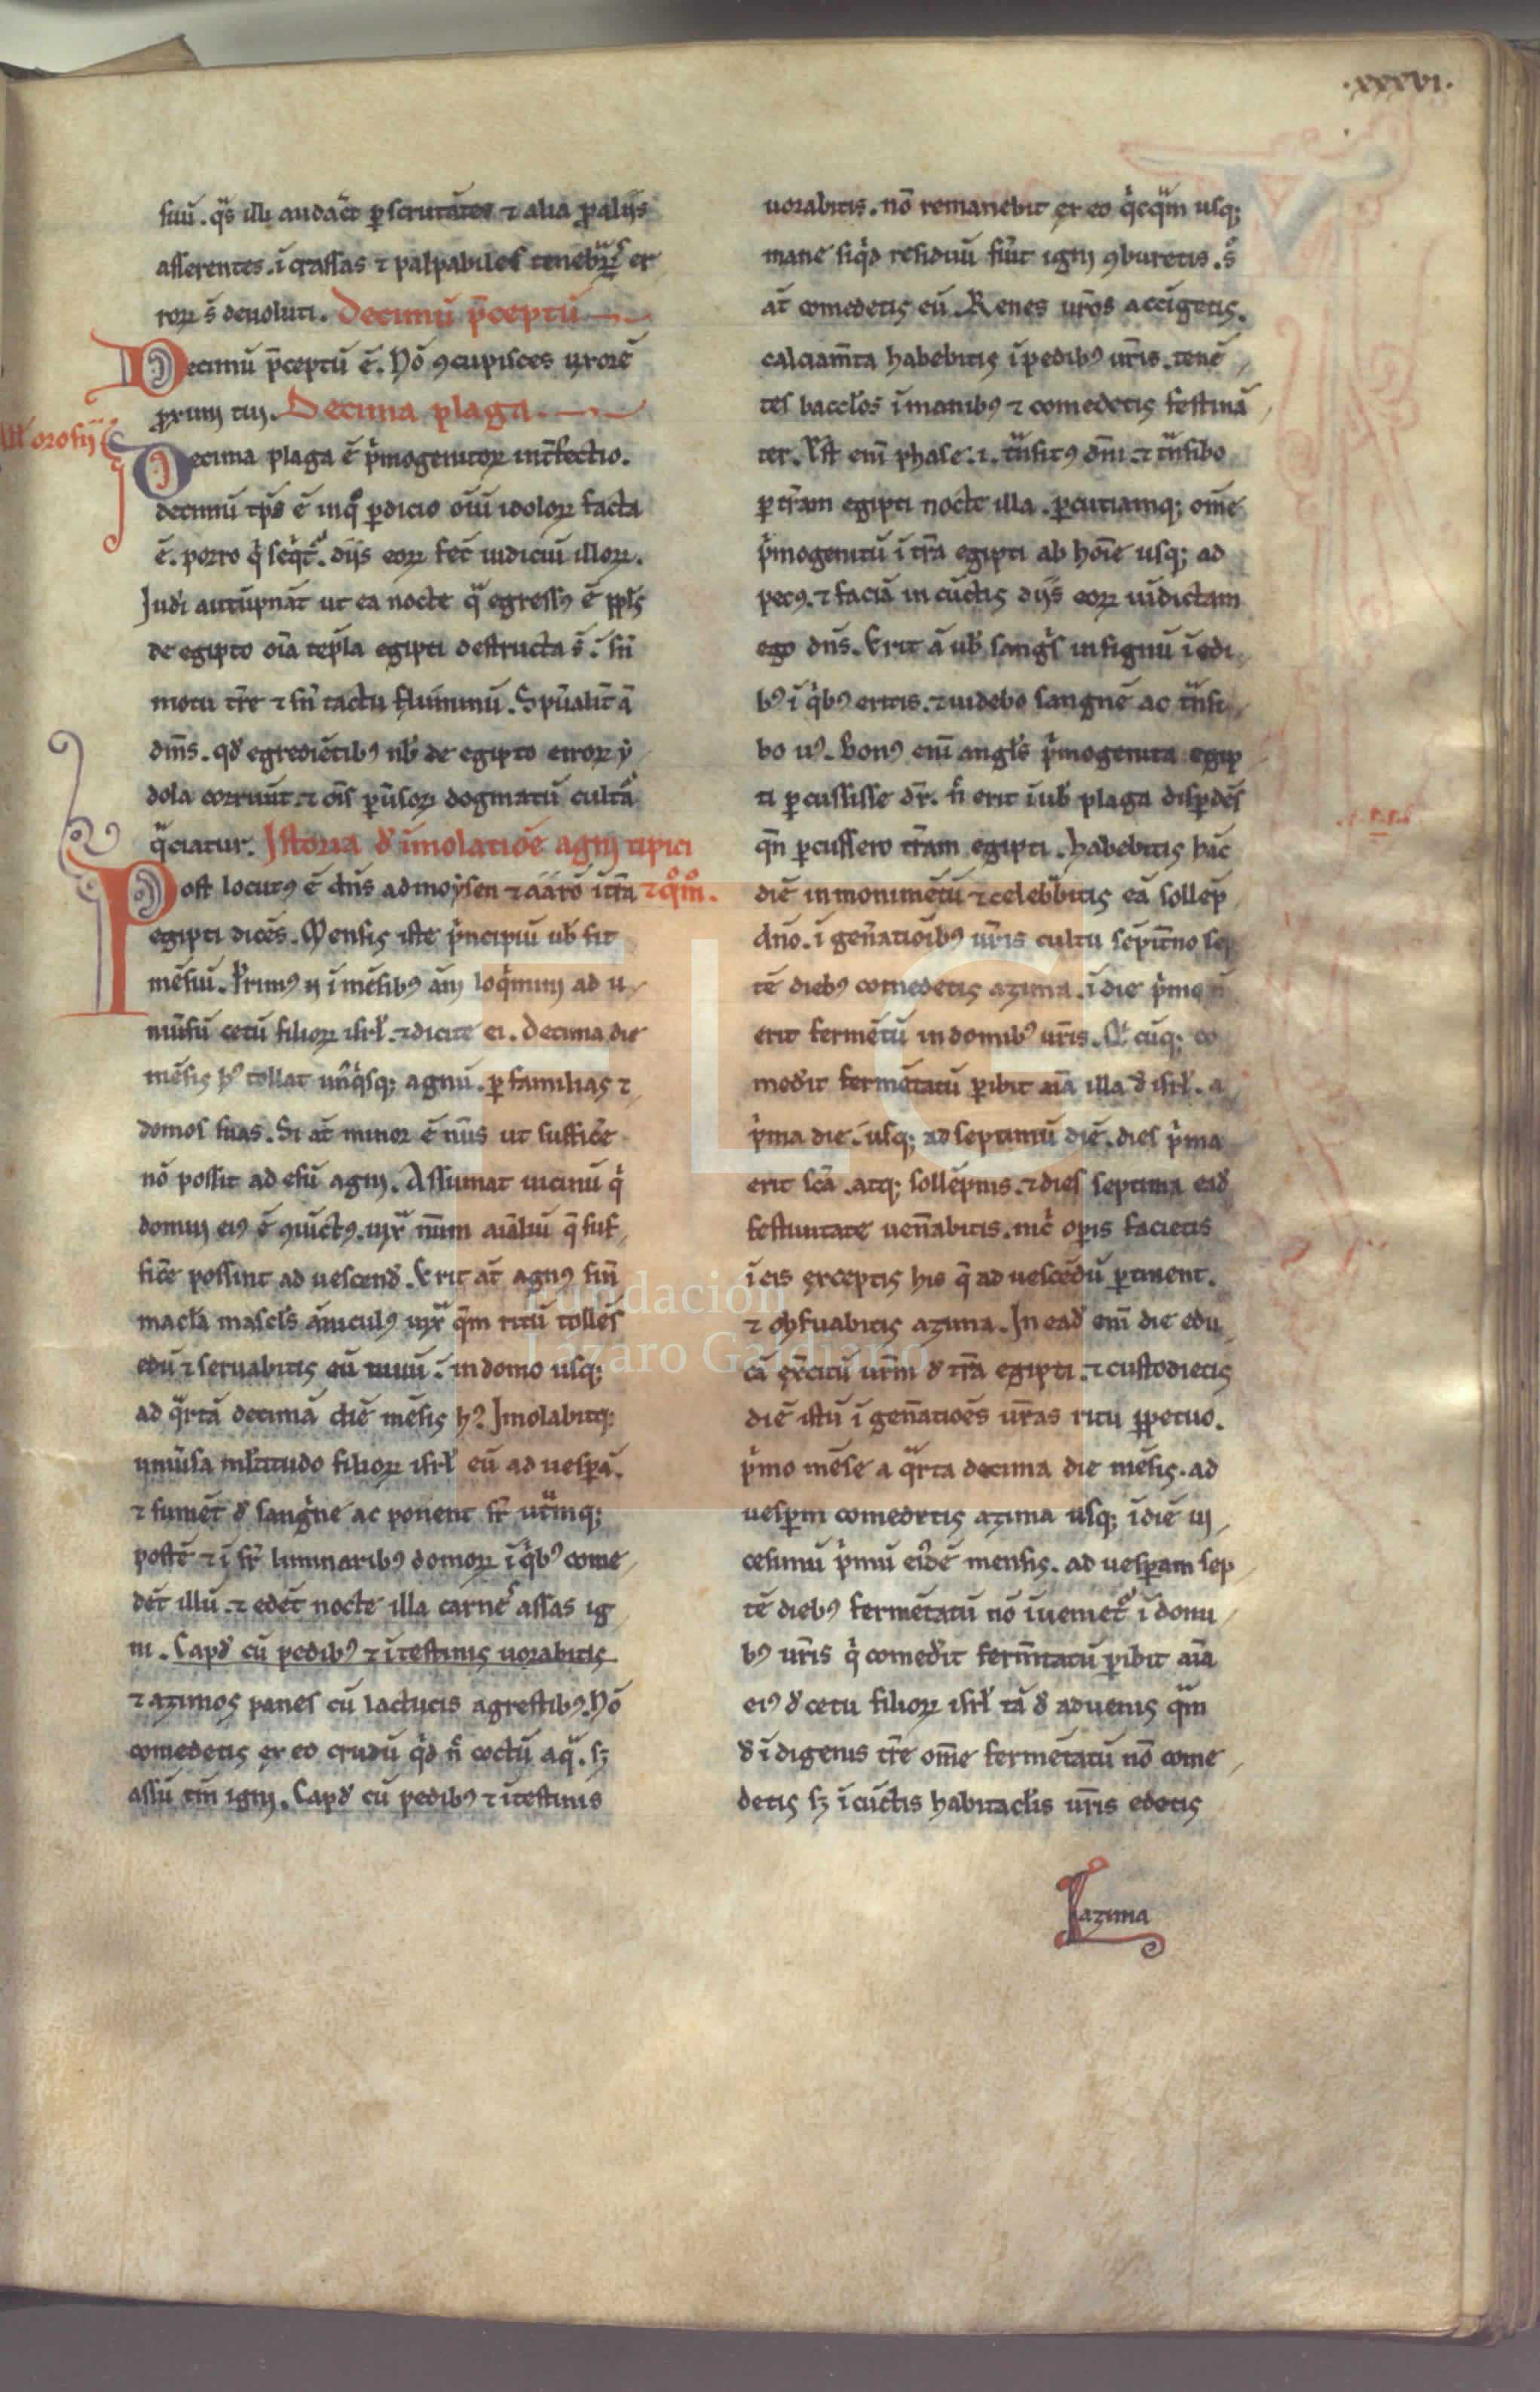 .xxxvi.
suū. q̄s illi audaċt ꝑscrutātes ⁊ alia ꝓ aliis
asserentes. ī crassas ⁊ palpabiles tenebꝝ er
roꝝ s̄ deuoluti. Decimū p̄ceptū
Decimū p̄ceptū ē. Nō ꝯcupisces uxorē
ꝓximi tui. Decima plaga.
orosii
Decima plaga ē p̍mogenitoꝝ int̄fectio.
decimū tp̄s ē inqͦ ꝑdicio oīū idoloꝝ facta
ē. porro q̍ seq̍t̉. diis eoꝝ fec̄ iudiciū illoꝝ.
Judi autūpnāt ut ea nocte qᷓ egressꝰ ē ppl̄s
de egipto oīa tēpla egipti destructa s̄. ī siū
motu tr̄e ⁊ siū tactu fluminū. Spūalit̄ ā
dm̄s. qđ egrediētibꝰ nob̄ de egipto erroꝝ ẏ
dola corruūt. ⁊ oīs ꝑūsoꝝ dogmatū cultā
qᷓciatur. Jstoria đ īmolatiōe agni tipici
Post locutꝰ ē dn̄s ad moẏsen ⁊ aarō ī tr̄a ⁊ qͦmͦ.
egipti dicēs. Mensis iste p̍ncipiū uob̄ sit
mēsiū. Prímꝰ ī mēsibꝰ ām̄ loq̍mini ad u
niūsū cetū filioꝝ isrł. ⁊ dicite ei. Decima die
mēsis hꝰ tollat unꝰq̍sqꝫ agnū. ꝑ familias ⁊
domos suas. Si at̄ minor ē nūs ut suffic̄e
nō possit ad esū agni. Assumat uicinū q̍
domui eiꝰ ē ꝯiūctꝰ. iux̄ nūm aīaliū q̄ suf
fic̄e possint ad uescend̄. Erit at̄ agnꝰ sin̄
macła mascl̄s āniculꝰ iux̄ q̄m ritū tolles
edū ⁊ seruabitis eū uiuū. in domo usqꝫ
ad q̄rtā decimā diē mēsis hꝰ. Jmolabitqꝫ
uniūsa mltitudo filioꝝ isrł eū ad uesꝑā.
⁊ sumēt đ sang̍ne ac ponent sr̄ utͣmqꝫ
postē ⁊ ī sr̄ liminaribꝰ domoꝝ ī q̍bꝰ come
dēt illū. ⁊ edēt nocte illa carnes assas ig
ni. Capđ cū pedibꝰ ⁊ ītestinis uorabitis
⁊ azimos panes cū lactucis agrestibꝰ. Nō
comedetis ex eo crudū q̍d n̄ coctū aqᷓ. sꝫ
assū tm̄ igni. Capđ cū pedibꝰ ⁊ ītestinis
uorabitis. nō remanebit ex eo q̍cqᷓm usqꝫ
mane siq̍d residuū fūit igni ꝯburetis. s̄
at̄ comedetis eū. Renes ur̄os accīgetis.
calciam̄ta habebitis ī pedibꝰ ur̄is. tenē
tes bacclos ī manibꝰ ⁊ comedetis festinā
ter. Est eni phase .i. tᷓnsitꝰ dn̄i. ⁊ tᷓnsibo
ꝑ tr̄am egipti nocte illa. ꝑcutiamqꝫ om̄e
p̍mogenitū ī tr̄a egipti ab hoīe usqꝫ ad
pecꝰ. ⁊ faciā in cūctis diis eoꝝ uīdictam
ego dn̄s. Erit ā uob̄ sang̍s in signū ī edi
bꝰ ī q̍bꝰ eritis. ⁊ uidebo sang̍nē ac tᷓnsi
bo uꝰ. Bonꝰ eni angl̄s p̍mogenita egip
ti ꝑcussisse dr̄. n̄ erit ī uob̄ plaga disꝑdēs
qn̄ ꝑcussero tr̄am egipti. habebitis hāc
diē in monimētū ⁊ celebᷓbitis eā sollēp
dn̄o. ī gen̄atiōibꝰ ur̄is cultu sēpit̄no sep
tē diebꝰ comedetis azima. ī die p̍mo n̄
erit fermētū in domibꝰ ur̄is. Qͥcūqꝫ co
međit fermētatū ꝑibit aīa illa đ isrł. a
p̍ma die. usqꝫ ad septimū diē. dies p̍ma
erit sc̄a. atqꝫ sollēpnis. ⁊ dies septima eađ
festiuitate uen̄abitis. nic̍ oꝑis facietis
ī eis exceptis his q̄ ad uescēdū ꝑtinent.
⁊ obseruabitis azima. In eađ eni die edu
cā ex̄citū ur̄m đ tr̄a egipti. ⁊ custodietis
diē istū ī gen̄atiōes ur̄as ritu ꝑpetuo.
p̍mo mēse a qᷓrta decima die mēsis. ad
uesꝑm comedetis azima usqꝫ ī diē ui
cesimū p̍mū eiꝰdē mensis. ad uesꝑam sep
tē diebꝰ fermētatū nō īueniet̉ ī domi
bꝰ ur̄is q̍ comeđit ferm̄tatū ꝑibit aīa
eiꝰ đ cetu filioꝝ isrł tā đ aduenis qᷓm
đ īdigenis tr̄e om̄e fermētatū nō come
detis sꝫ ī cūctis habitacl̄is ur̄is edetis
azima
FLG
Fundación
Lázaro Galdiano